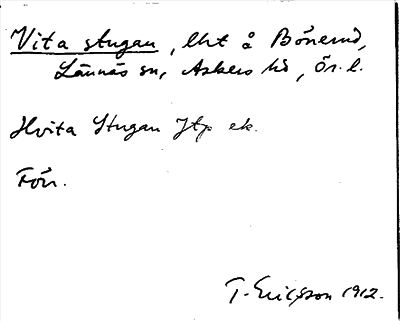 Vita stugan, lht å Bönerud,
Lännäs sn, Askers hd, Ör. l.
Hvita Stugan Jtp ek.
Förr.
T. Ericsson 1912.